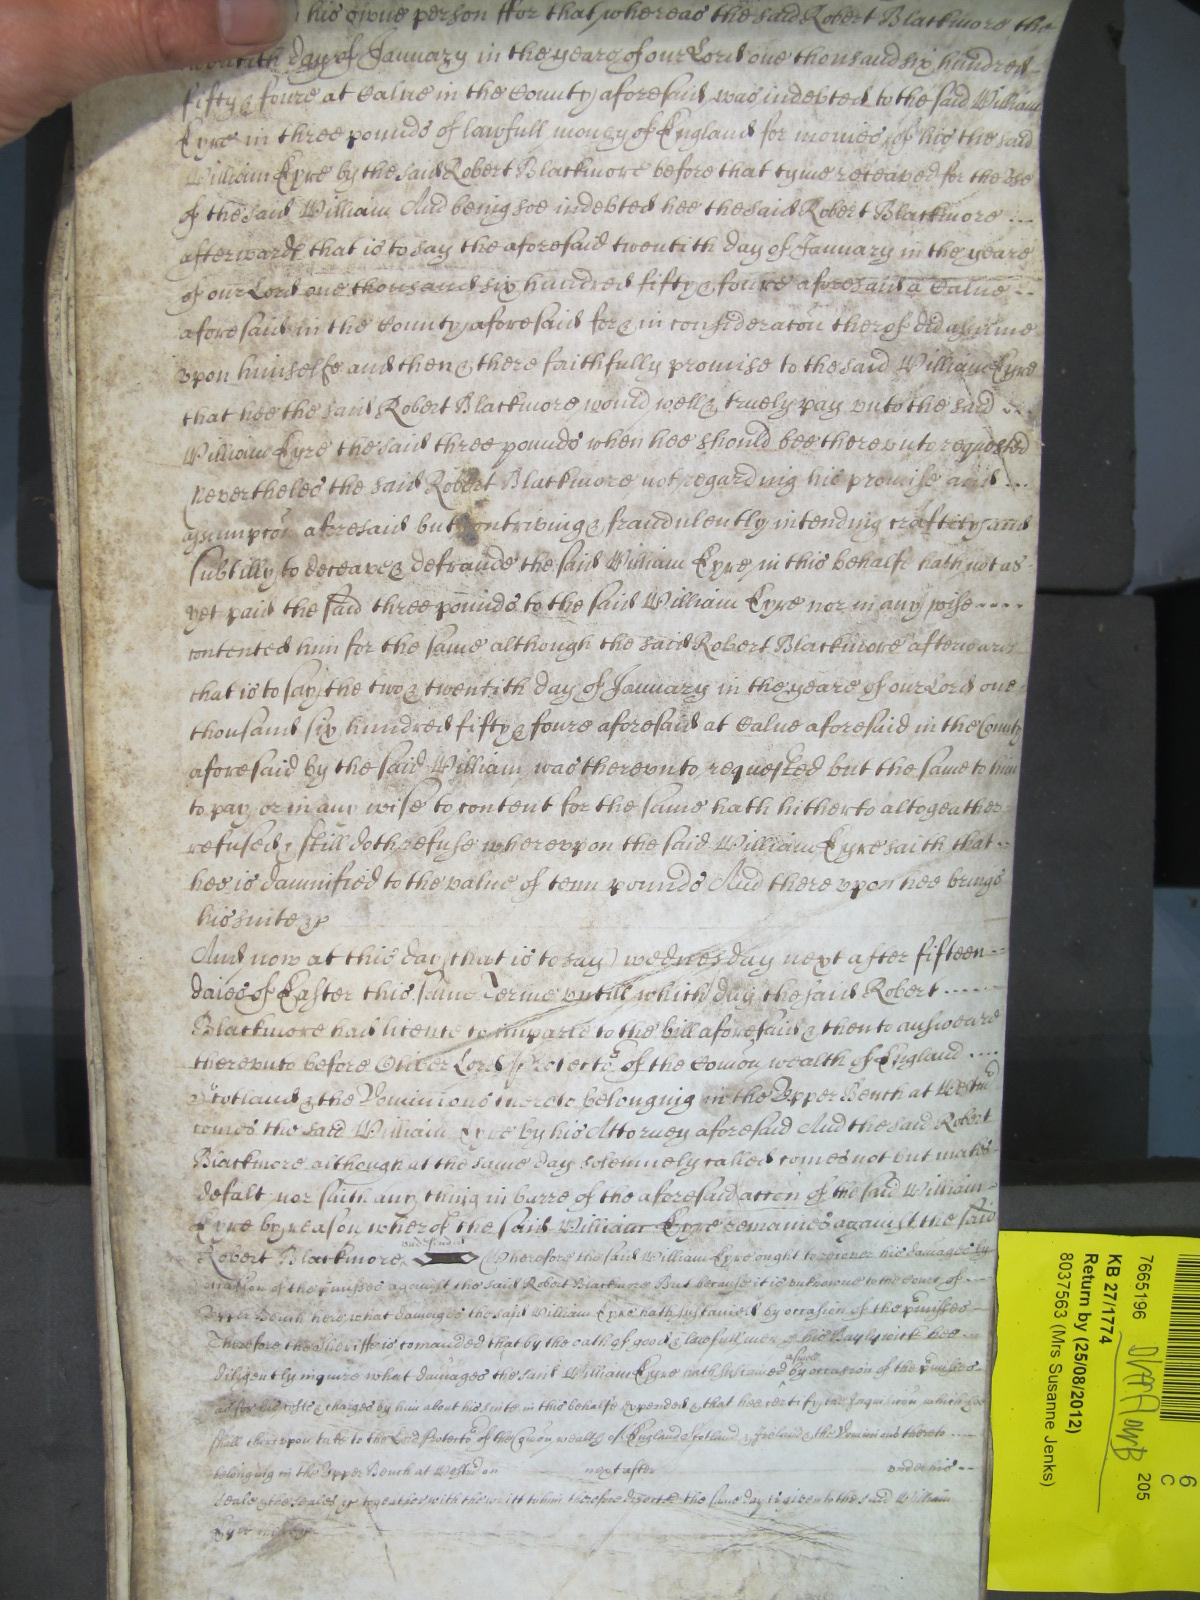 his owne person ffor that whereas the said Robert Blackmore the
day of January in the yeare of our Lord one thousand six hundred
fifty & foure at Calne in the County aforesaid was indebted to the said William
Eyre in three pounds of lawfull money of England for monies of his the said
William Eyre by the said Robert Blackmore before that tyme receaved for the Use
of the said William And being soe indebted hee the said Robert Blackmore
afterwards that is to say the aforesaid twentith day of January in the yeare
of our Lord one thousand six hundred fifty & foure aforesaid a Calne
aforesaid in the County aforesaid for & in consideracon therof did assume
vpon himselfe and then & there faithfully promise to the said William Eyre
that hee the said Robert Blackmore would well & truely pay vnto the said
William Eyre the said three pounds when hee should bee therevnto requested
Nevertheles the said Robert Blackmore not regarding his promise and
assumpcon aforesaid but contriving & fraudulently intending craftily and
subtilly to deceave & defraude the said William Eyre in this behalfe hath not as
yet paid the said three pounds to the said William Eyre nor in any wise
contented him for the same although the said Robert Blackmore afterwards
that is to say the two & twentith day of January in the yeare of our Lord one
thousand six hundred fifty & foure aforesaid at Calne aforesaid in the County
aforesaid by the said William was therevnto requested but the same to him
to pay or in any wise to content for the same hath hitherto altogeather
refused & still doth refuse wherevpon the said William Eyre saith that
hee is damnified to the value of tenn pounds And there vpon hee brings
his suite &c
And now at this day (that is to say) wednesday next after fifteen
daies of Easter this same Terme vntill which day the said Robert
Blackmore had licence to imparle to the bill aforesaid & then to answeare
therevnto before Oliver Lord Protector of the Comon wealth of England
Scotland & the Dominions thereto belonging in the Vpper Bench at Westmr
comes the said William Eyre by his Attorney aforesaid And the said Robert
Blackmore although at the same day solemnely called comes not but makes
defalt nor saith any thing in barre of the aforesaid accon of the said William
Eyre by reason wherof the said William Eyre remaines against the said
Robert Blackmore vndefended Therefore the said William Eyre ought to recover his damages by
occasion of the premisses against the said Robert Blackmore But because it is vnknowne to the Court of
Vpper Bench here what damages the said William Eyre hath sustained by occasion of the premisses
Therefore the Sheriffe is comanded that by the oath of good & lawfull men of his Baylywick hee
diligently inquire what damages the said William Eyre hath sustained aswell by occasion of the premisses
as for his costs & charges by him about his suite in this behalfe expended & that hee certify the Inquisicon which hee
shall therevpon take to the Lord Protector of the Comon wealth of England Scotland & Ireland & the Dominions thereto
belonging in the Vpper Bench at Westmr on next after vnder his
Seale & the Seales &c togeather with the writt to him therefore directed the same day is given to the said William
Eyre
7665196
KB 27/1774
Return by (25/08/2012)
8037563 (Mrs Susanne Jenks)
205
6
C